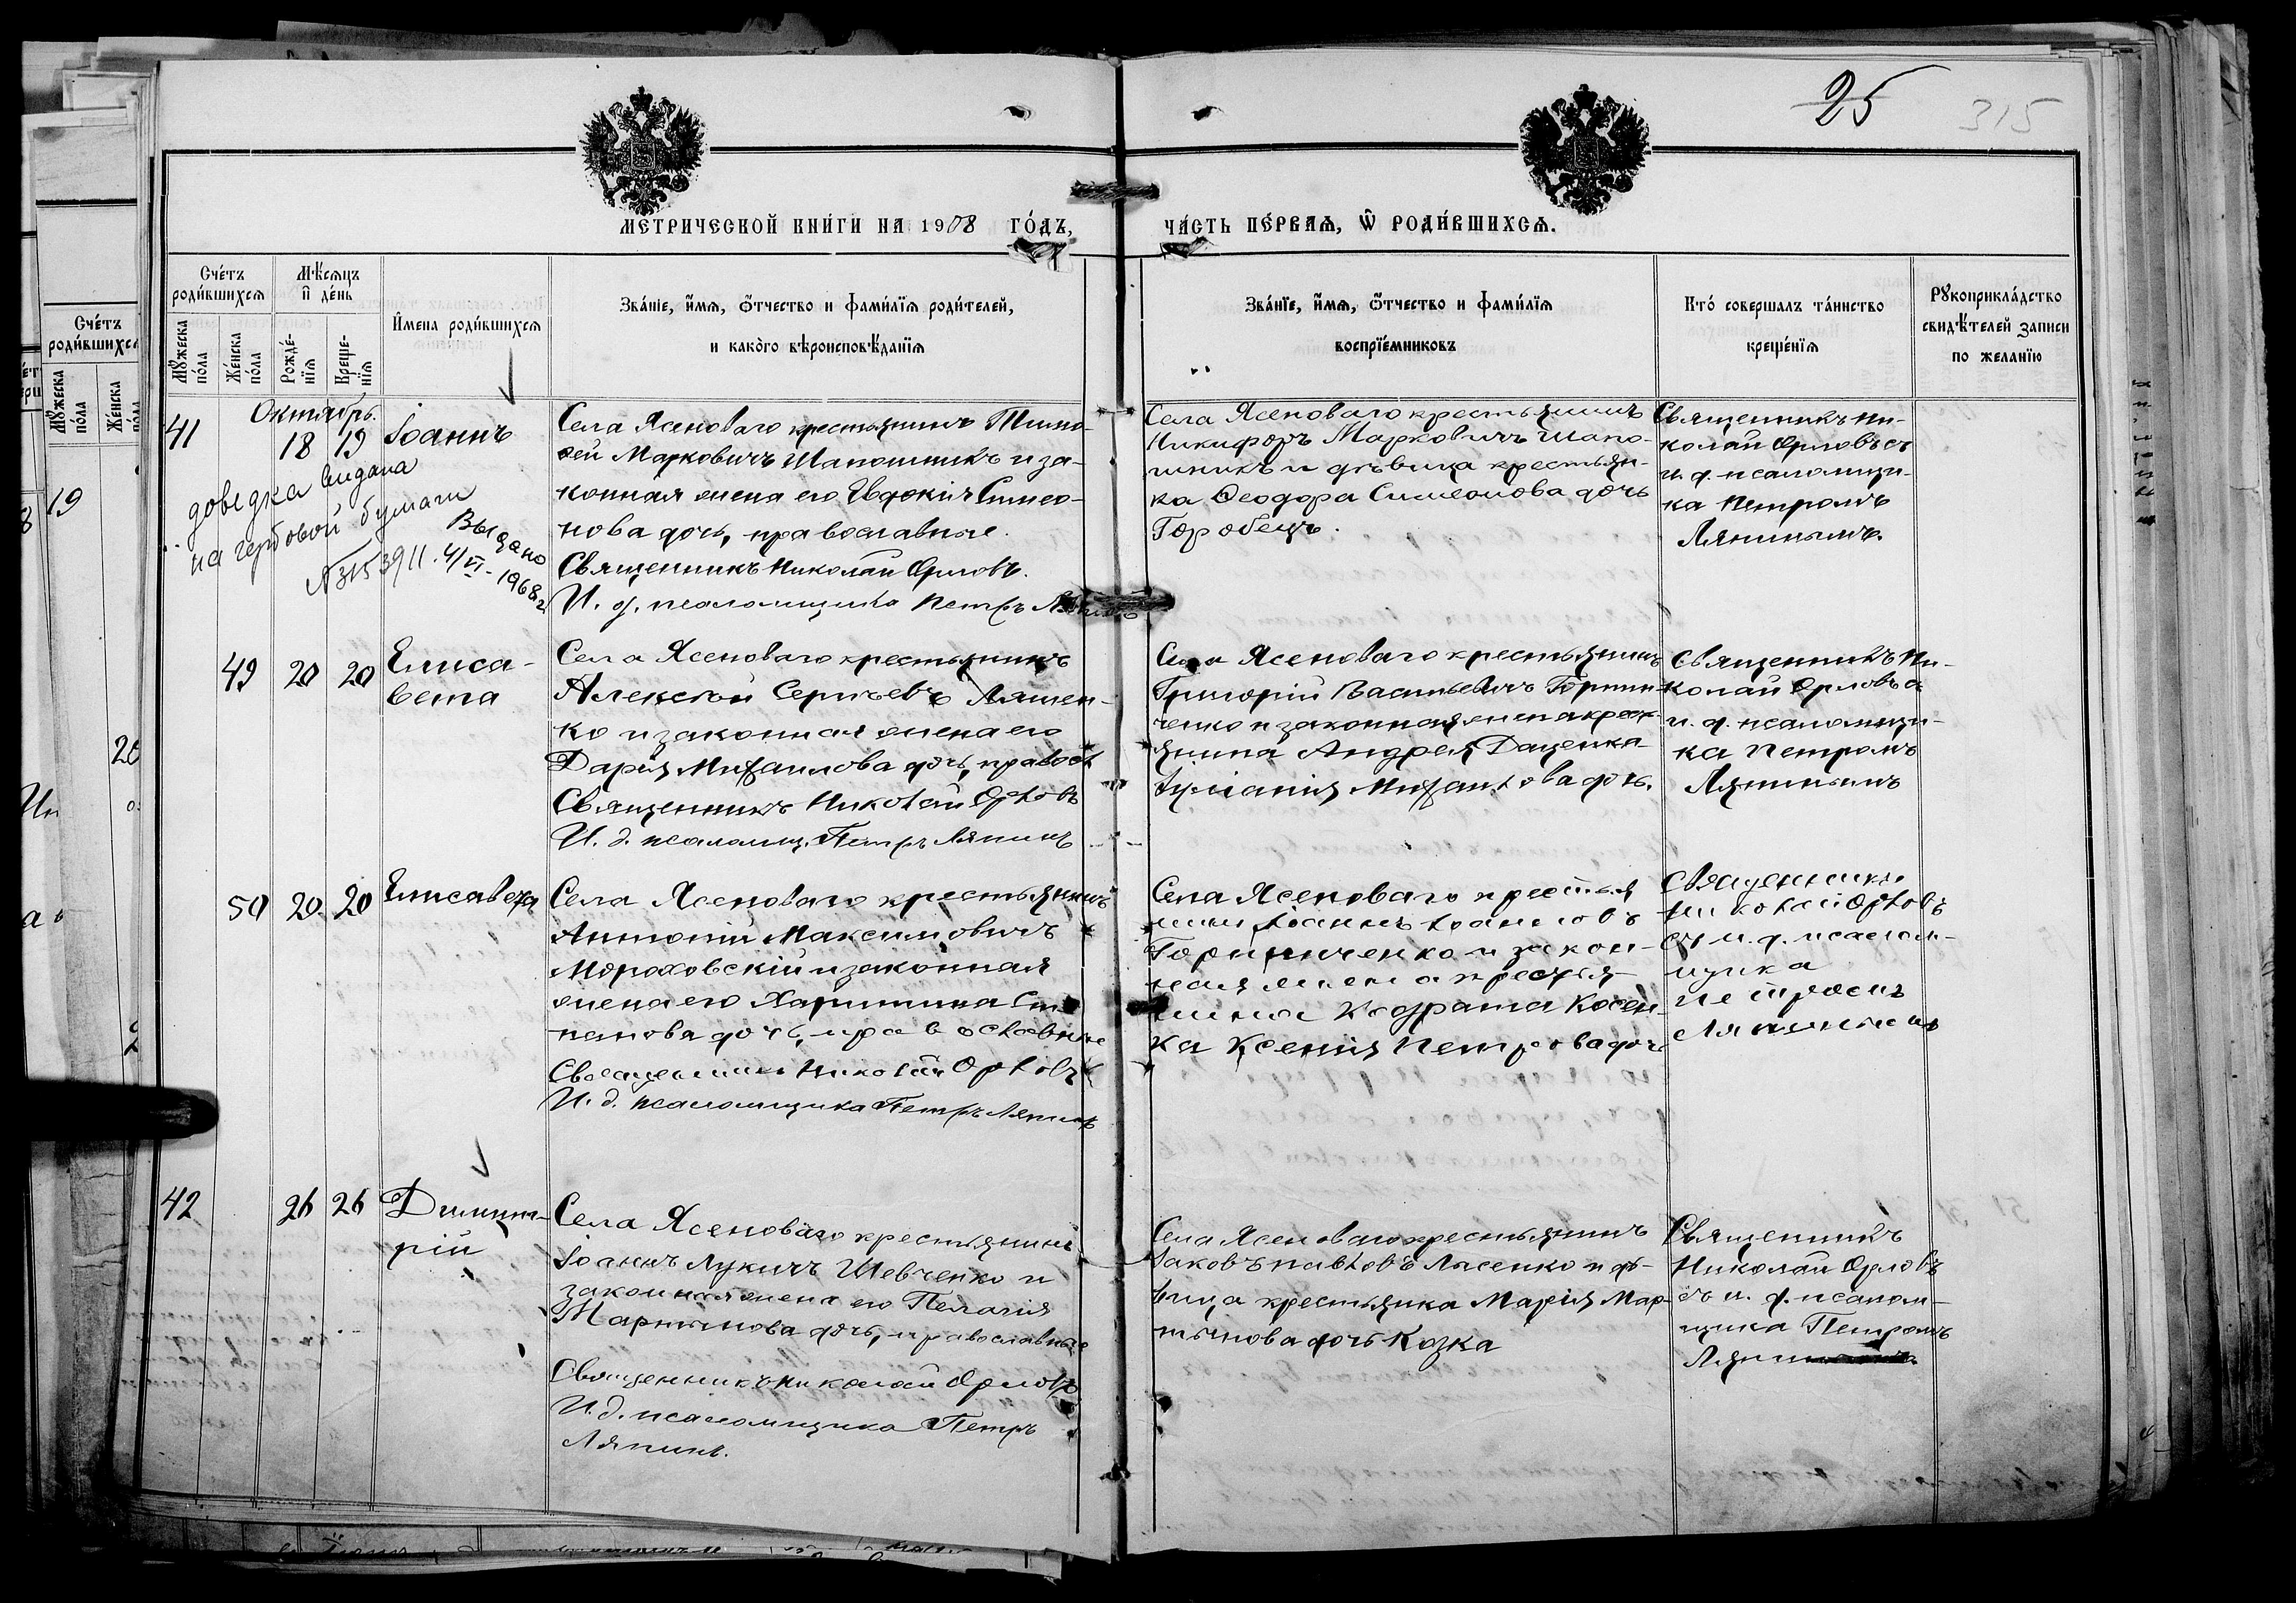 25
315
МЕТРИЧЕСКОЙ КНИ́ГИ НА 1908 ГО́ДЪ,
ЧА́СТЬ ПЕ́РВАѦ, Ѡ҃ РОДИ́ВШИХСѦ.
Сче́тъ роди́вшихсѧ
Мѣ́сѧцъ и҆ де́нь
И҆мена роди́вшихсѧ
Зва́нїе, и҆́мѧ, ѻ҆́тчество и фами́лїѧ роди́телей,
и како́го вѣроисповѣ́данїѧ
Мꙋ́жеска по́ла
Же́нска по́ла
Рожде́-нїѧ
Креще-нїѧ
Зва́нїе, и҆́мѧ, ѻ҆́тчество и фами́лїѧ
воспрїе́мниковъ
Кто́ соверша́лъ та́инство
креще́нїѧ
Рꙋкоприкла́дство
свидѣ́телей записи
по жела́нїю
41
Октябрь.
18 19
Іоаннъ
Села Ясеноваго крестьянинъ Тимо-
ѳей Марковичъ Шапошникъ и за-
конная жена его Евдокія Симео-
нова дочь, православные.
Священникъ Николай Орловъ.
И. д. псаломщика Петръ Ляпинъ
доведка видана
на гербовой бумаги
Выдано
4/VI-1968г
Села Ясеноваго крестьянинъ
Никифоръ Марковичъ Шапо-
шникъ и дѣвица крестьян-
ка Ѳеодора Симеонова дочь
Горобецъ.
Священникъ Ни-
колай Орловъ съ
и. д. псаломщи-
ка Петромъ
Ляпинымъ.
49 20 20
Елиса-
вета
Села Ясеноваго крестьянинъ
Алексѣй Сергѣевъ Ляшен-
ко и законная жена его
Дарія Михаилова дочь, правосл
Священникъ Николай Орловъ
И. д. псаломщ. Петръ Ляпинъ
Села Ясеноваго крестьянинъ
Григорій Васильевичъ Горпин-
ченко и законная жена крест-
янина Андрея Даценка
Іуліанія Михаилова дочь.
Священникъ Ни-
колай Орловъ съ
и. д. псаломщи-
ка Петромъ
Ляпинымъ
50 20 20
Елисавета
Села Ясеноваго крестьянинъ
Антоній Максимовичъ
Мороховскій и законная
жена его Харитина Сте
панова дочь, православные
Священникъ Николай Орловъ
И. д. псаломщика Петръ Ляпинъ
Села Ясеноваго крестья
нинъ Іоаннъ Іоанновъ
Горпинченко и закон-
ная жена крестья-
нина Кодрата Косен-
ка Ксенія Петрова дочь
Священникъ
Николай Орловъ
съ и. д. псалом-
щика
Петромъ
Ляпинымъ
42 26 26
Димит-
рій
Села Ясеноваго крестьянинъ
Іоаннъ Лукичъ Шевченко и
законная жена его Пелагія
Мартинова дочь, православные
Священникъ Николай Орловъ
И. д. псаломщика Петръ
Ляпинъ.
Села Ясеноваго крестьянинъ
Іаковъ Павловъ Лысенко и дѣ-
вица крестьянка Марія Мар-
тынова дочь Козка
Священникъ
Николай Орловъ
съ и. д. псалом-
щика Петромъ